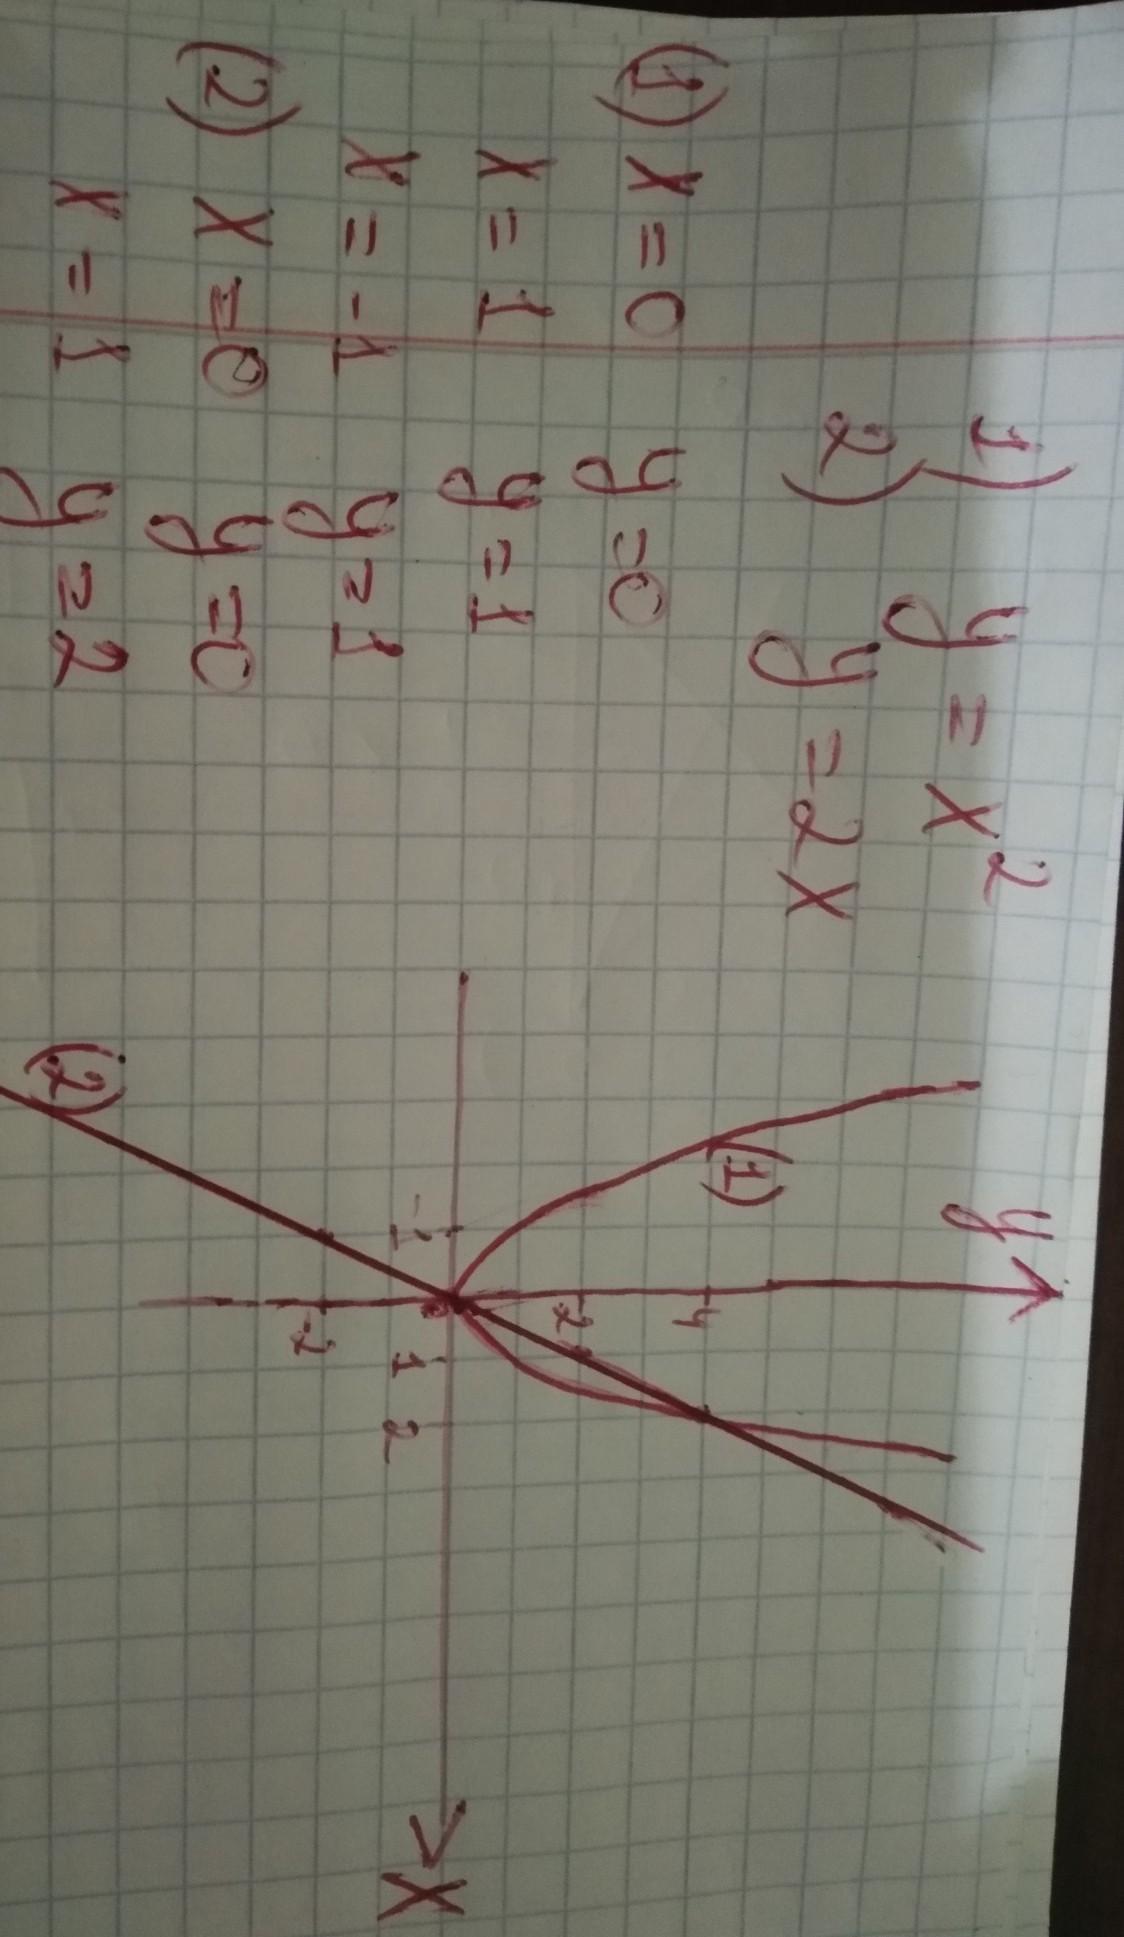 1) y = x²
2) y = 2x
(1) x = 0 y = 0
x = 1 y = 1
x = -1 y = 1
(2) x = 0 y = 0
x = 1 y = 2
y
(1)
4
2
-1 0 1 2
x
-2
(2)